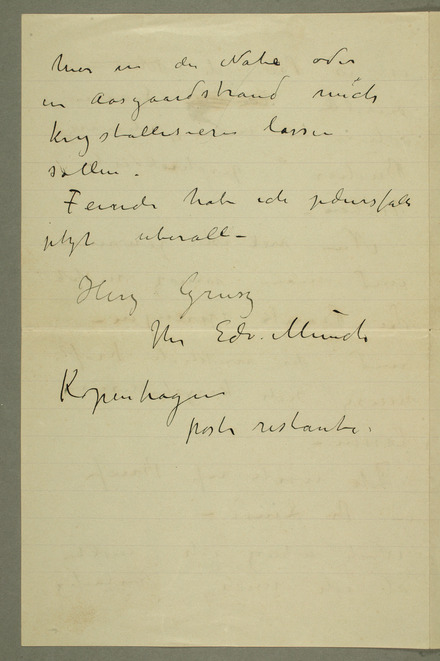 hier in der Nähe oder
in Aasgaardstrand mich
krystallisieren lassen
sollen.
Feinde habe ich jedensfalls
jetzt überall –
Herz Grusz
Ihr Edv. Munch
Kopenhagen
poste restante.